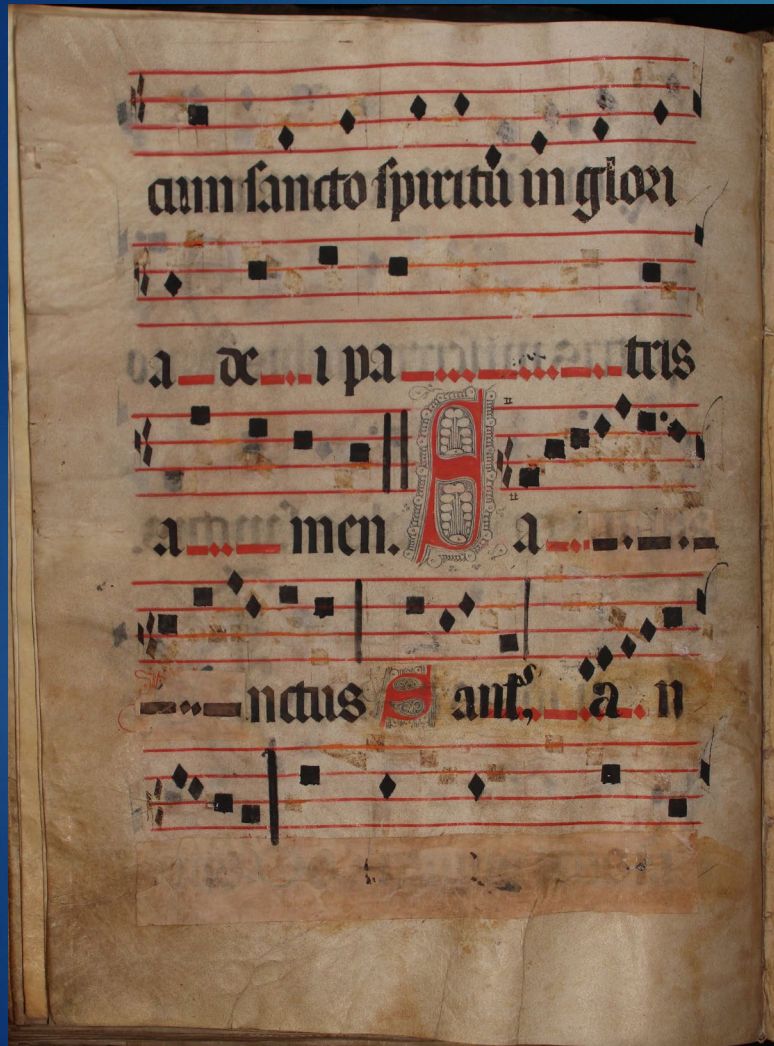 cum sancto spiritū in glori
a de i pa tris
a men. Sa
nctus Sanctꝰ, a n